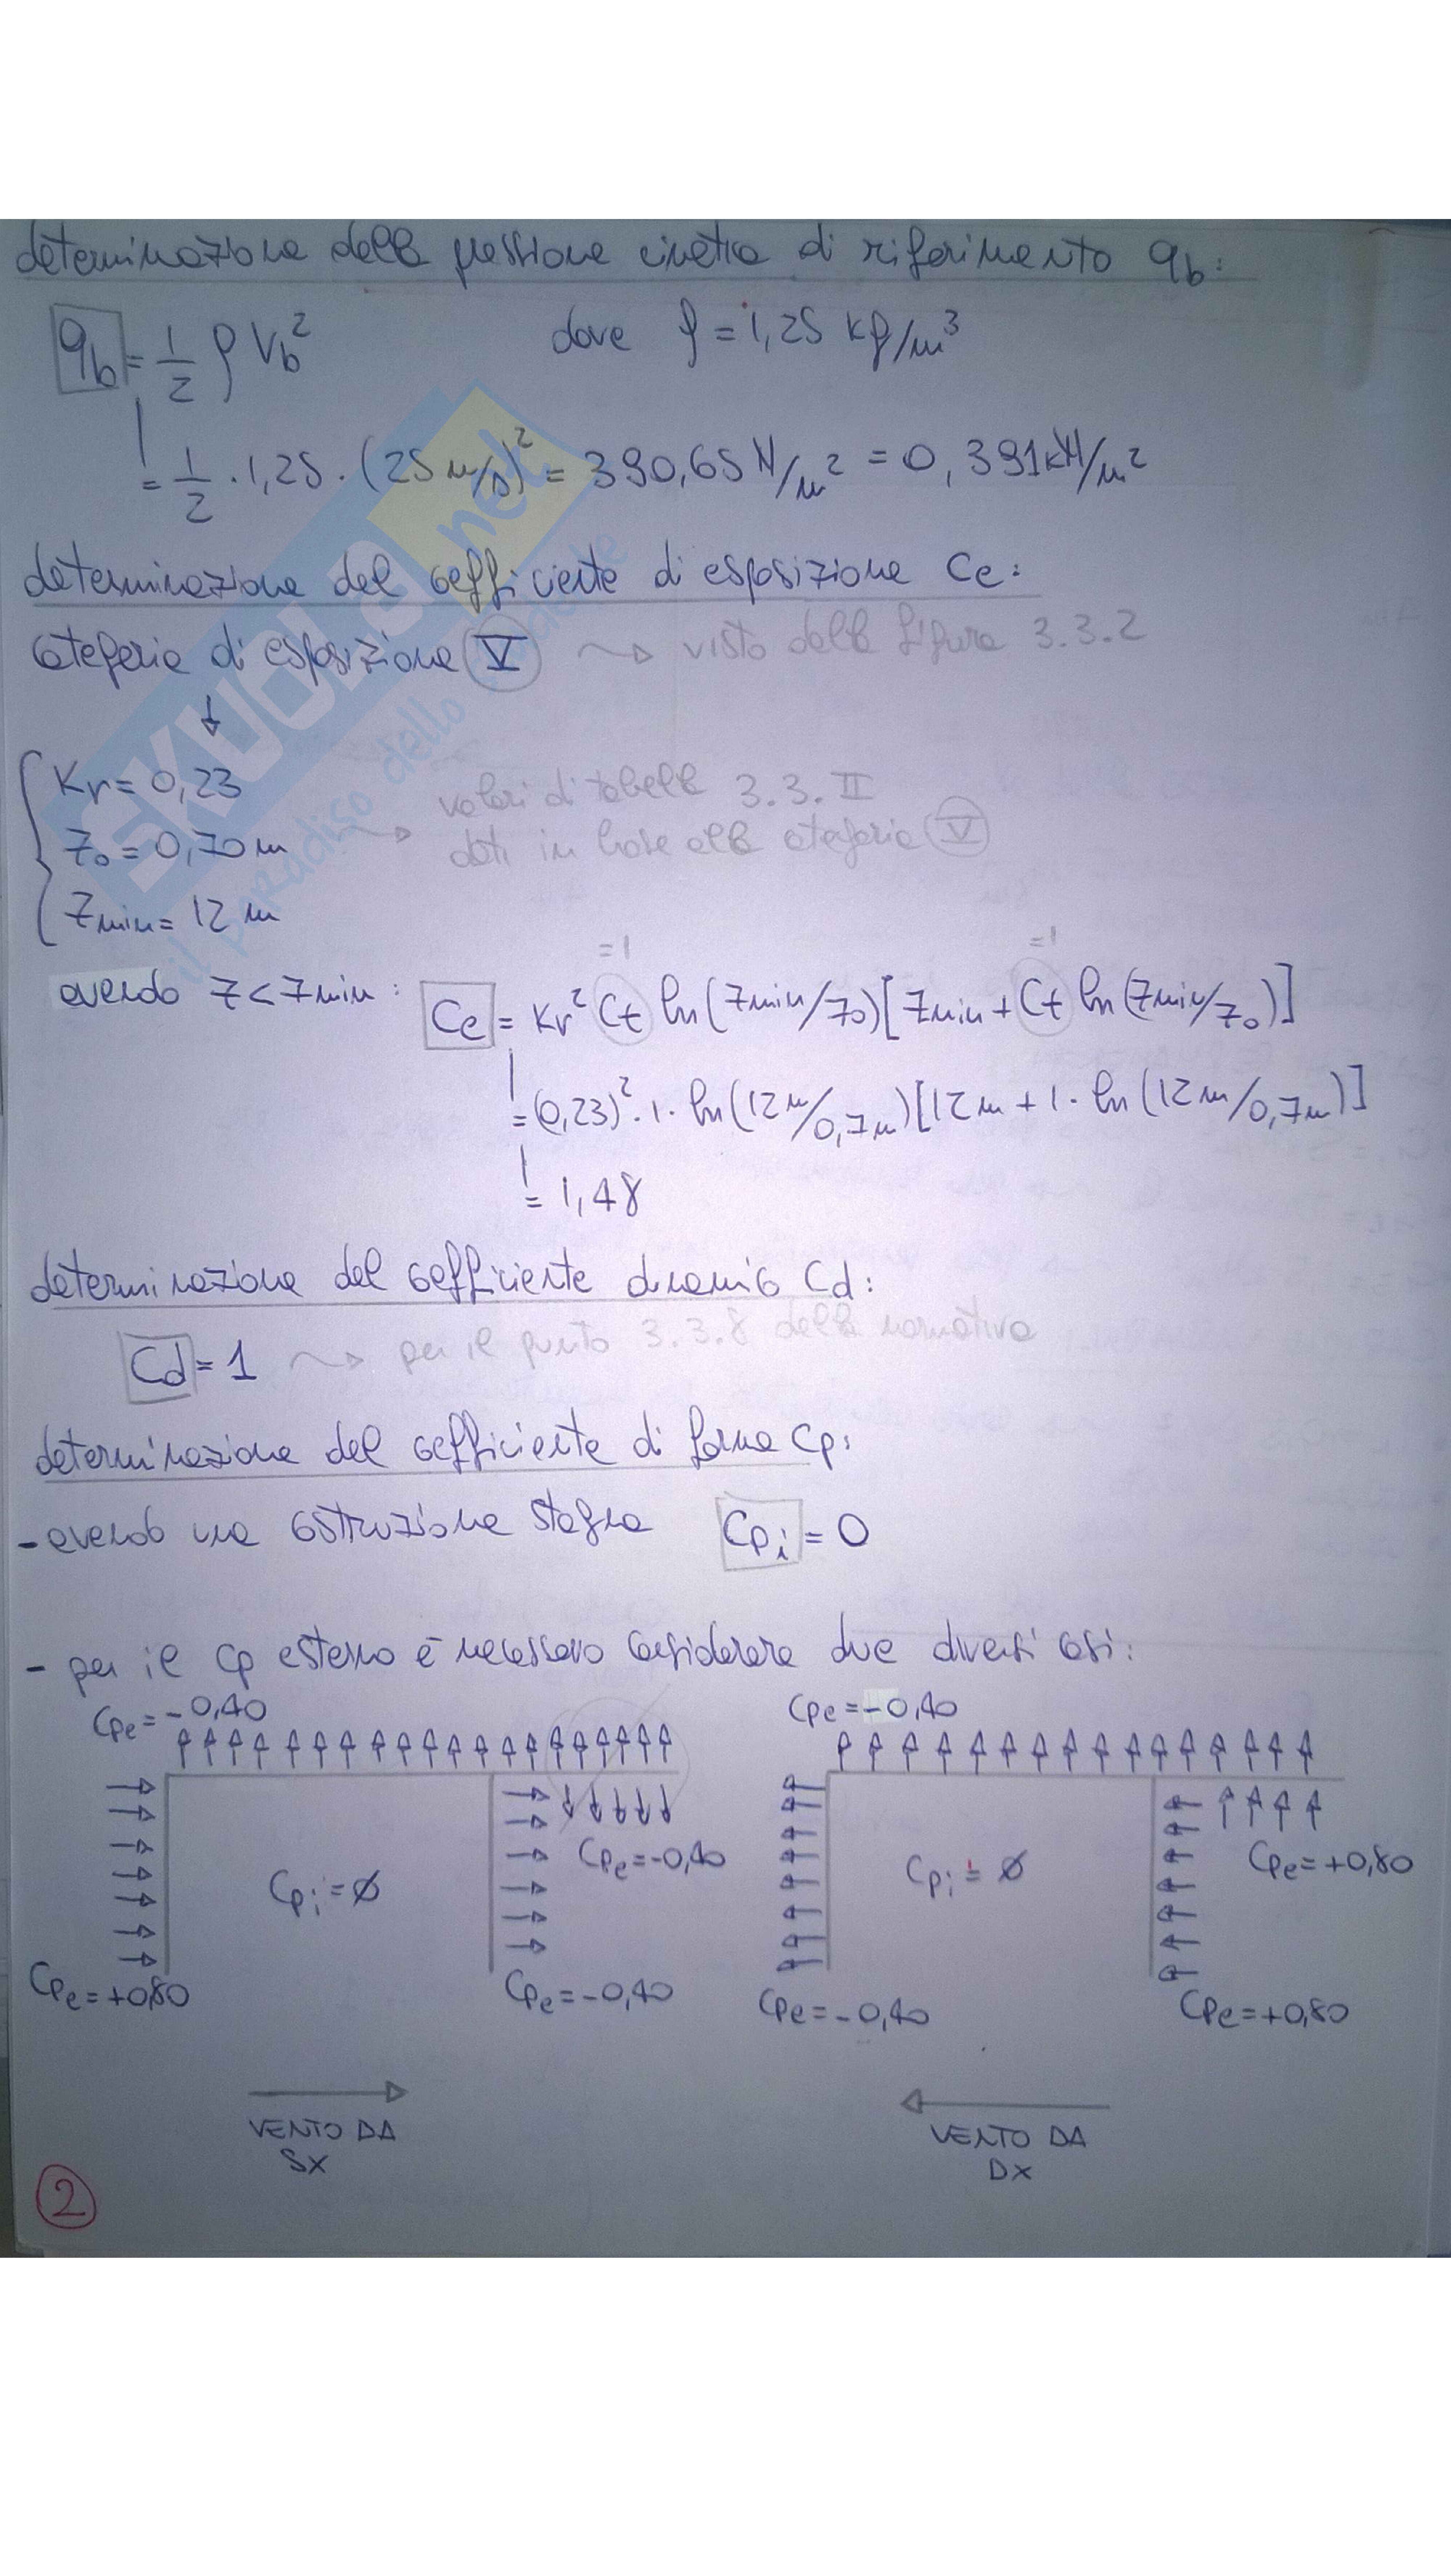 determinazione della pressione cinetica di riferimento qb:
qb = 1/2 ρ Vb² dove ρ = 1,25 kg/m³
= 1/2 · 1,25 · (25 m/s)² = 390,65 N/m² = 0,391 kN/m²
determinazione del coefficiente di esposizione Ce:
categoria di esposizione V ⟿ visto dalla figura 3.3.2
↓
Kr = 0,23
z0 = 0,70 m ⟿ valori di tabella 3.3.II
dati in base alla categoria V
zmin = 12 m
=1 =1
avendo z < zmin: Ce = Kr² Ct ln(zmin/z0)[zmin + Ct ln(zmin/z0)]
= (0,23)² · 1 · ln(12 m/0,7m)[12 m + 1 · ln(12 m/0,7m)]
= 1,48
determinazione del coefficiente dinamico Cd:
Cd = 1 ⟿ per il punto 3.3.8 della normativa
determinazione del coefficiente di forma Cp:
- avendo una costruzione stagna Cpi = 0
- per il Cp esterno è necessario considerare due diversi casi:
Cpe = -0,40 Cpe = -0,40
Cpe = -0,40 Cpe = +0,80
Cpi = Ø Cpi = Ø
Cpe = +0,80 Cpe = -0,40 Cpe = -0,40 Cpe = +0,80
VENTO DA
SX
VENTO DA
DX
2
SKUOLA.net
il paradiso dello studente